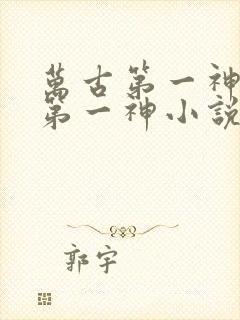 萬古第一神
第一神小說
郭宇